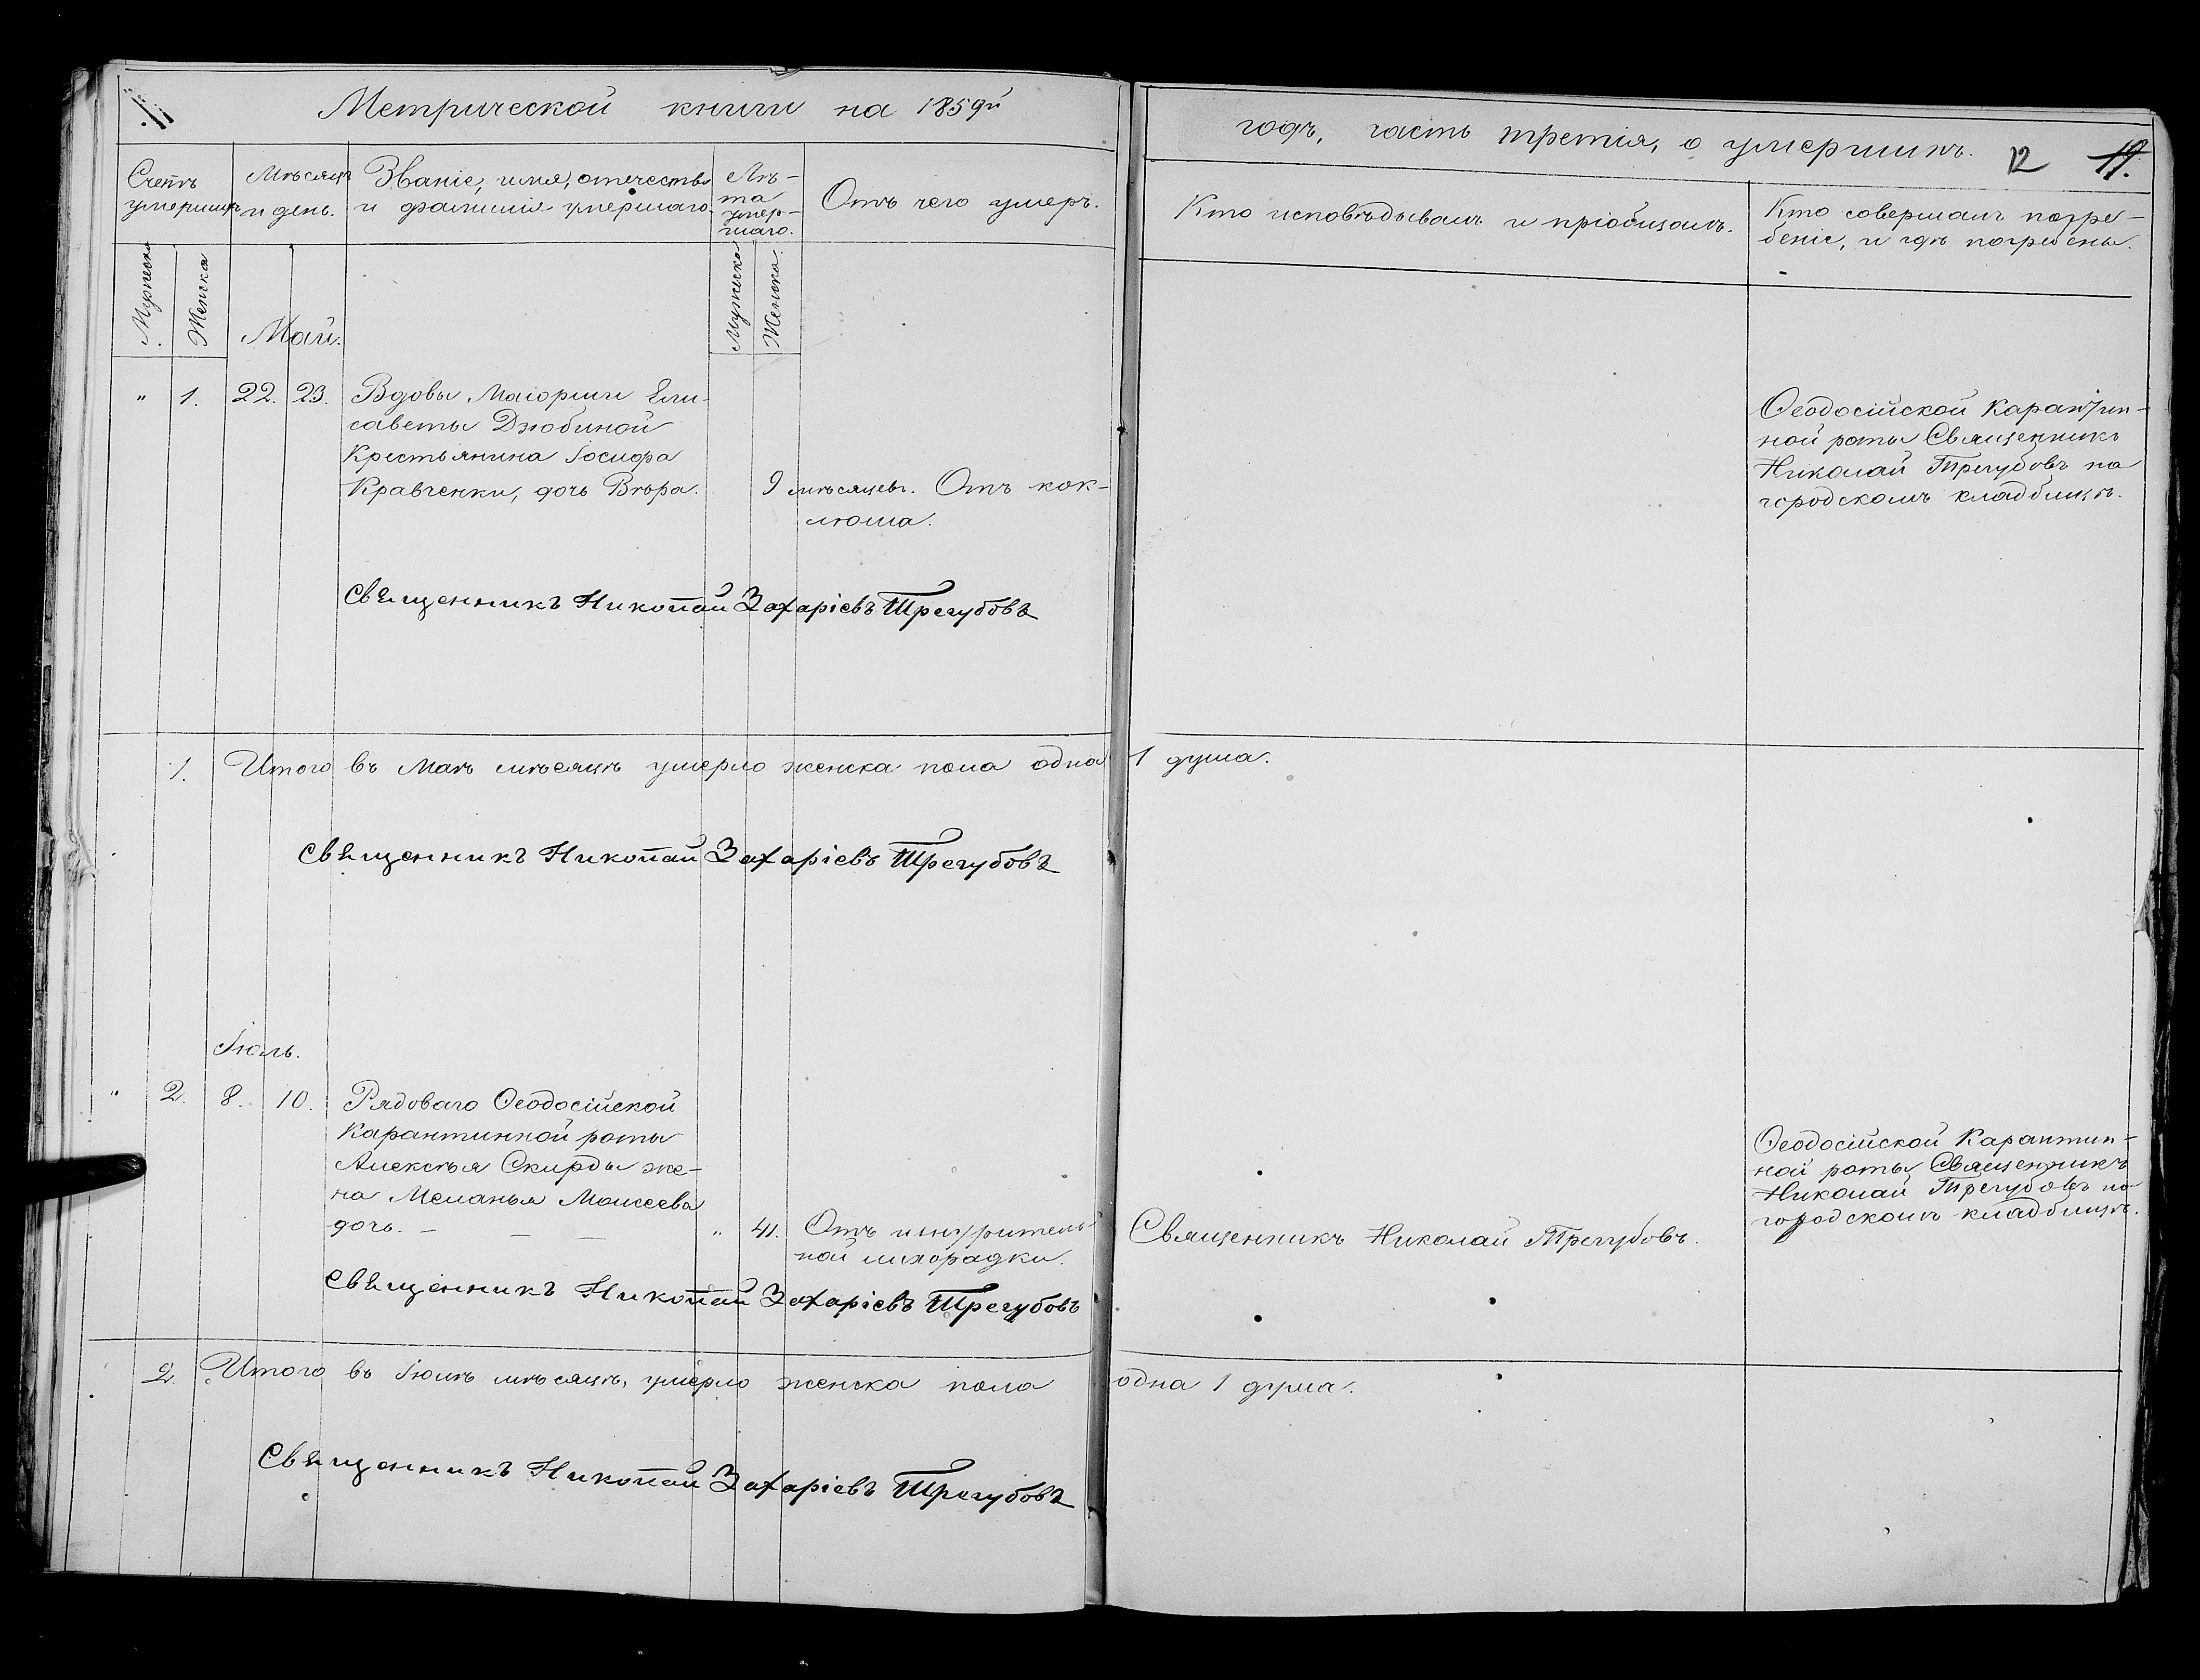 11
Метрической книги на 1859й
годъ, часть третія, о умершихъ.
12
Счетъ умершихъ
Мѣсяцъ и день.
Званіе, имя, отечество
и фамилія умершаго.
Лѣ-
та
умер-
шаго.
Отъ чего умеръ.
Кто исповѣдывалъ и пріобщалъ.
Кто совершалъ погре-
беніе, и гдѣ погребены.
Мужеска
Женска
Май.
Мужеска
Женска.
" 1. 22. 23. Вдовы Маіорши Ели-
саветы Дзюбиной
Крестьянина Іосифа
Кравченки, дочь Вѣра. 9 мѣсяцевъ. Отъ кок-
люша.
Ѳеодосійской Карантин-
ной роты Священникъ
Николай Трегубовъ на
городскомъ кладбищѣ.
Священникъ Николай Захаріевъ Трегубовъ
1. Итого въ Маѣ мѣсяцѣ умерло женска пола одна 1 душа.
Священникъ Николай Захаріевъ Трегубовъ
Іюль.
" 2. 8. 10. Рядоваго Ѳеодосійской
Карантинной роты
Алексѣя Скирды же-
на Меланья Моисеева
дочь. — — — " 41. Отъ изнуритель-
ной лихорадки.
Священникъ Николай Трегубовъ.
Ѳеодосійской Карантин-
ной роты Священникъ
Николай Трегубовъ на
городскомъ кладбищѣ.
Священникъ Николай Захаріевъ Трегубовъ
2. Итого въ Іюлѣ мѣсяцѣ, умерло женска пола одна 1 душа.
Священникъ Николай Захаріевъ Трегубовъ